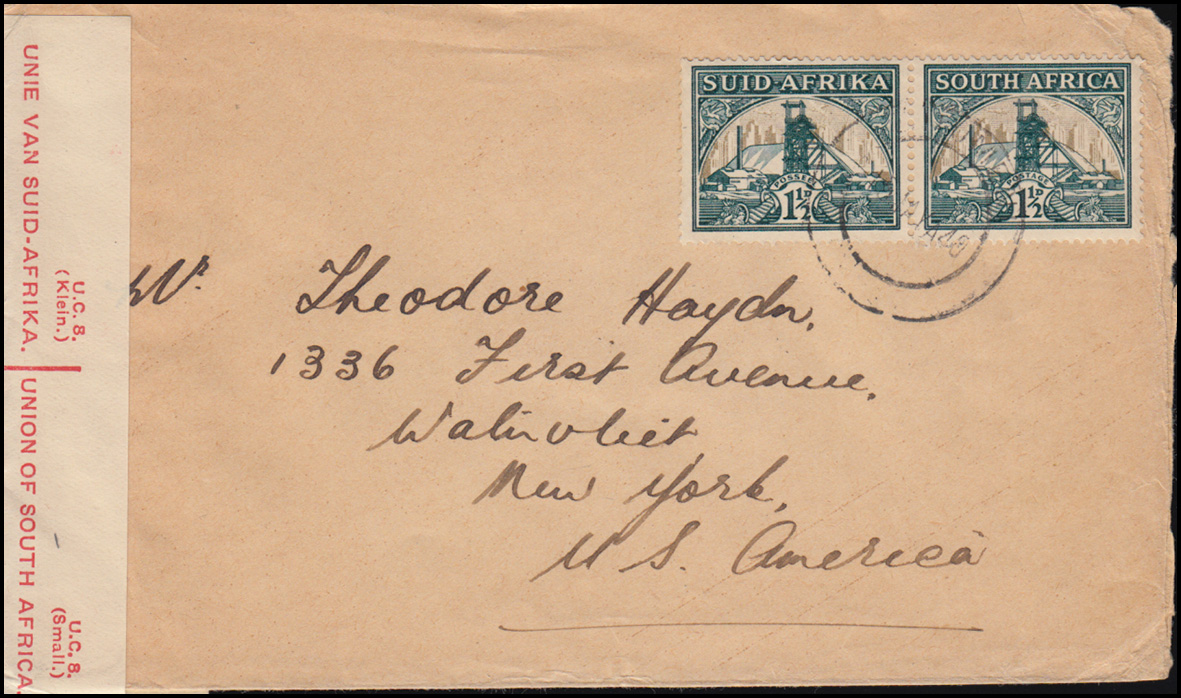 UNIE VAN SUID-AFRIKA.
U.C. 8.
(Klein.)
UNION OF SOUTH AFRICA.
U.C. 8.
(Small.)
SUID-AFRIKA
POSSEËL
1½D
SOUTH AFRICA
POSTAGE
1½D
Mr. Theodore Haydn,
1336 First Avenue,
Watervliet
New York,
U S. America